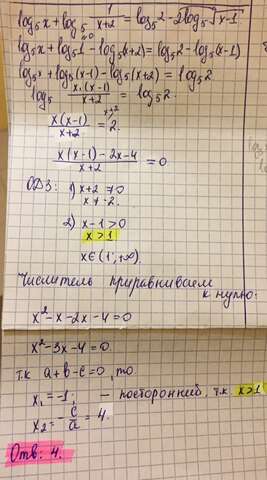 log₅x + log₅ 1/(x+2) = log₅2 - 2log₅√(x-1)
log₅x + log₅1 - log₅(x+2) = log₅2 - log₅(x-1)
log₅x + log₅(x-1) - log₅(x+2) = log₅2
log₅ x·(x-1)/(x+2) = log₅2.
x(x-1)/(x+2) = 2.
(x(x-1) - 2x - 4)/(x+2) = 0
ОДЗ: 1) x+2 ≠ 0
x ≠ -2.
2) x-1 > 0
x > 1
x∈(1; +∞).
Числитель приравниваем
к нулю:
x² - x - 2x - 4 = 0
x² - 3x - 4 = 0.
т.к a+b-c=0, то
x₁ = -1; - посторонний, т.к x>1
x₂ = -c/a = 4.
Отв: 4.